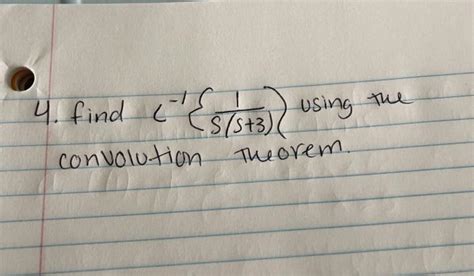 4. find L⁻¹{1/S(S+3)} using the
convolution Theorem.